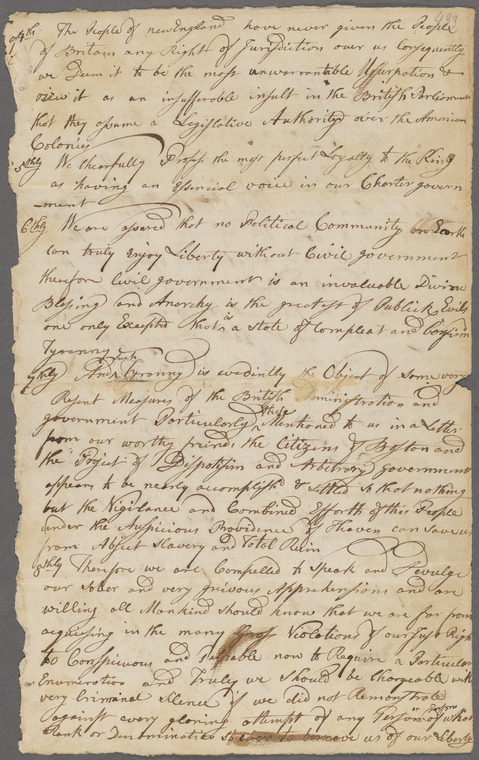 4th The People of newEngland have never given the People
of Britain any Right of Jurisdiction over us Consequently
we Deem it to be the most unwarrantable Usurpation &
view it as an insufferable insult in the British Parliment
that they assume a Legislative Authority over the American
Colonies
5thly We Chearfully Profess the most perfect Loyalty to the King
as having an Essencial voice in our Charter govern
-ment
6thly We are assared that no Political Community on Earth
can truly Enjoy Liberty without Civil government
therefore Civil government is an invaluable Divine
Blessing and Anarchy is the greatest of Publick Evils
one only Excepted that is a state of Compleat and Confirm
Tyranny
7thly And such a Tyranny is evedintly the Object of some very
Resent Measures of the British Administration and
government Particularly those Mentioned to us in a Letter
from our worthy friends the Citizens of Boston and
the Project of Dispotisim and Arbitrary government
appears to be nearly accomplishd & settled so that nothing
but the Vigilance and Combined Efforth of this People
under the Auspicious Providence of Heaven can save us
from Abject Slavery and Total Ruin
8thly Therefore we are Compelled to Speak and Devulge
our sober and very grievous Apprehensions and are
willing all Mankind should know that we are far from
acquiesing in the many Gross Violations of our just Right
too Conspicuous and Palpable now to Require a Particular
Enumeration and Truly we should be Chargeable with
very Criminal silence if we did not Remonstrate
against every glaring attempt of any Person or Persons of what
Rank or Denominatien so ever to bereave us of our Liberty